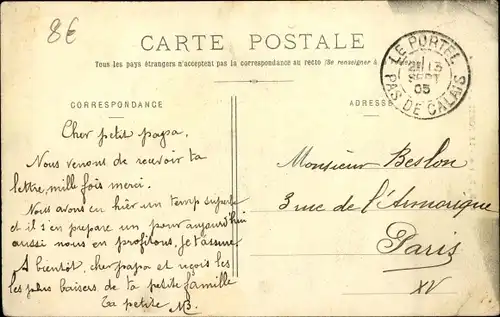 8€
CARTE POSTALE
Tous les pays étrangers n'acceptent pas la correspondance au recto (Se renseigner à
LE PORTEL
13
SEPT
05
PAS DE CALAIS
CORRESPONDANCE
ADRESSE
Cher petit papa,
Nous venons de recevoir ta
lettre, mille fois merci.
Nous avons eu hier un temps superbe
et il s'en prépare un pour aujourd'hui
aussi nous en profitons, je t'assure
A bientôt, cher papa et reçois les
les plus baisers de ta petite famille
Ta petite
Monsieur Beslon
3 rue de l'Armorique
Paris
XV